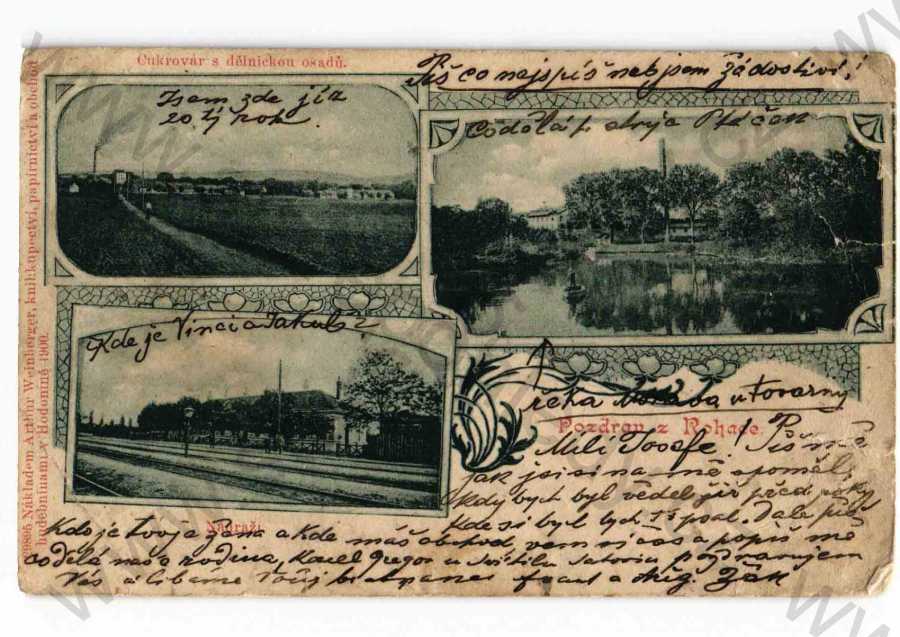 Cukrovár s dělnickou osadů.
Piš co nejspíš neb jsem žádostiví!
Jsem zde již
20 tj rok.
Co dělá strýc Ptáček
Kde je Vinci a Jakub?
řeka u továrny
Pozdrav z Rohatce.
Milí Josefe! Piš mě
jak jsi si na mě spoměl,
kdy bych byl věděl již před roky
kde si byl bych ti psal. Dále piš
Nádraží.
Kdo je tvoje žena a kde máš obchod vem si čas a popiš mě
co dělá naše rodina, Karel Gregor u pozdravujem
Vás a líbáme Tvůj bratranec Žák
Nákladem Arthur Weinberger, knihkupectví, papírnictví a obchod
hudebninami v Hodoníně 1900.